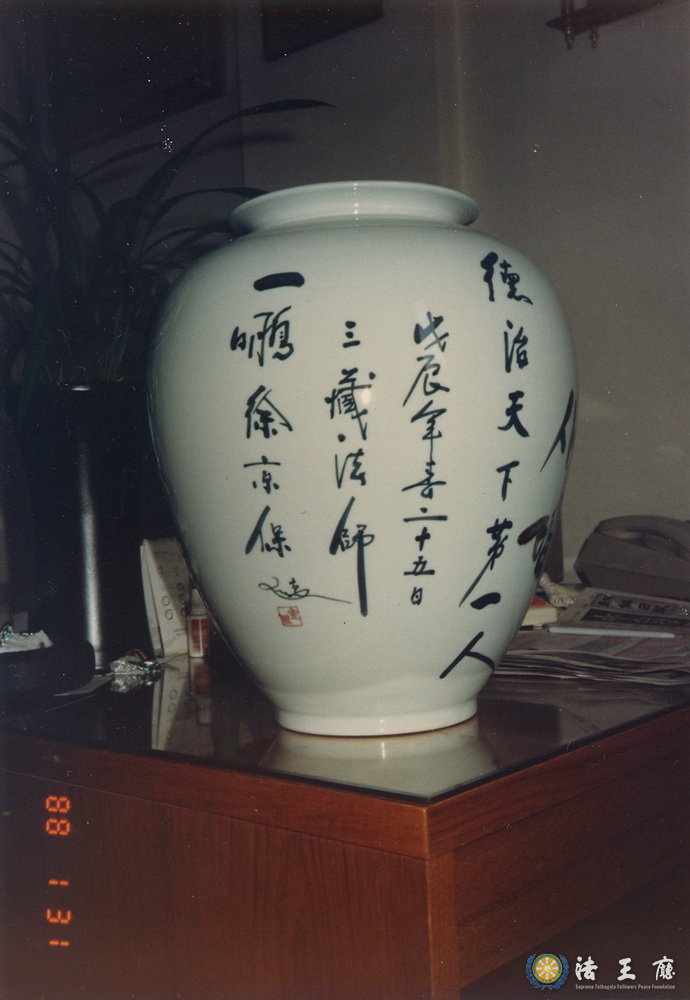 德治天下第一人
戊辰年春二十五日
三藏法師
一鵬徐京保
88 1 31
法王廳
Supreme Tathagata Followers Peace Foundation